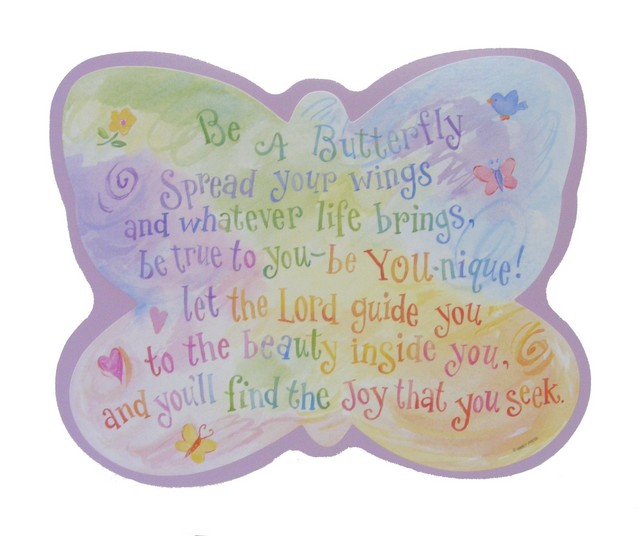 Be A Butterfly
Spread your wings
and whatever life brings,
be true to you-be YOU-nique!
let the Lord guide you
to the beauty inside you,
and you'll find the Joy that you seek.